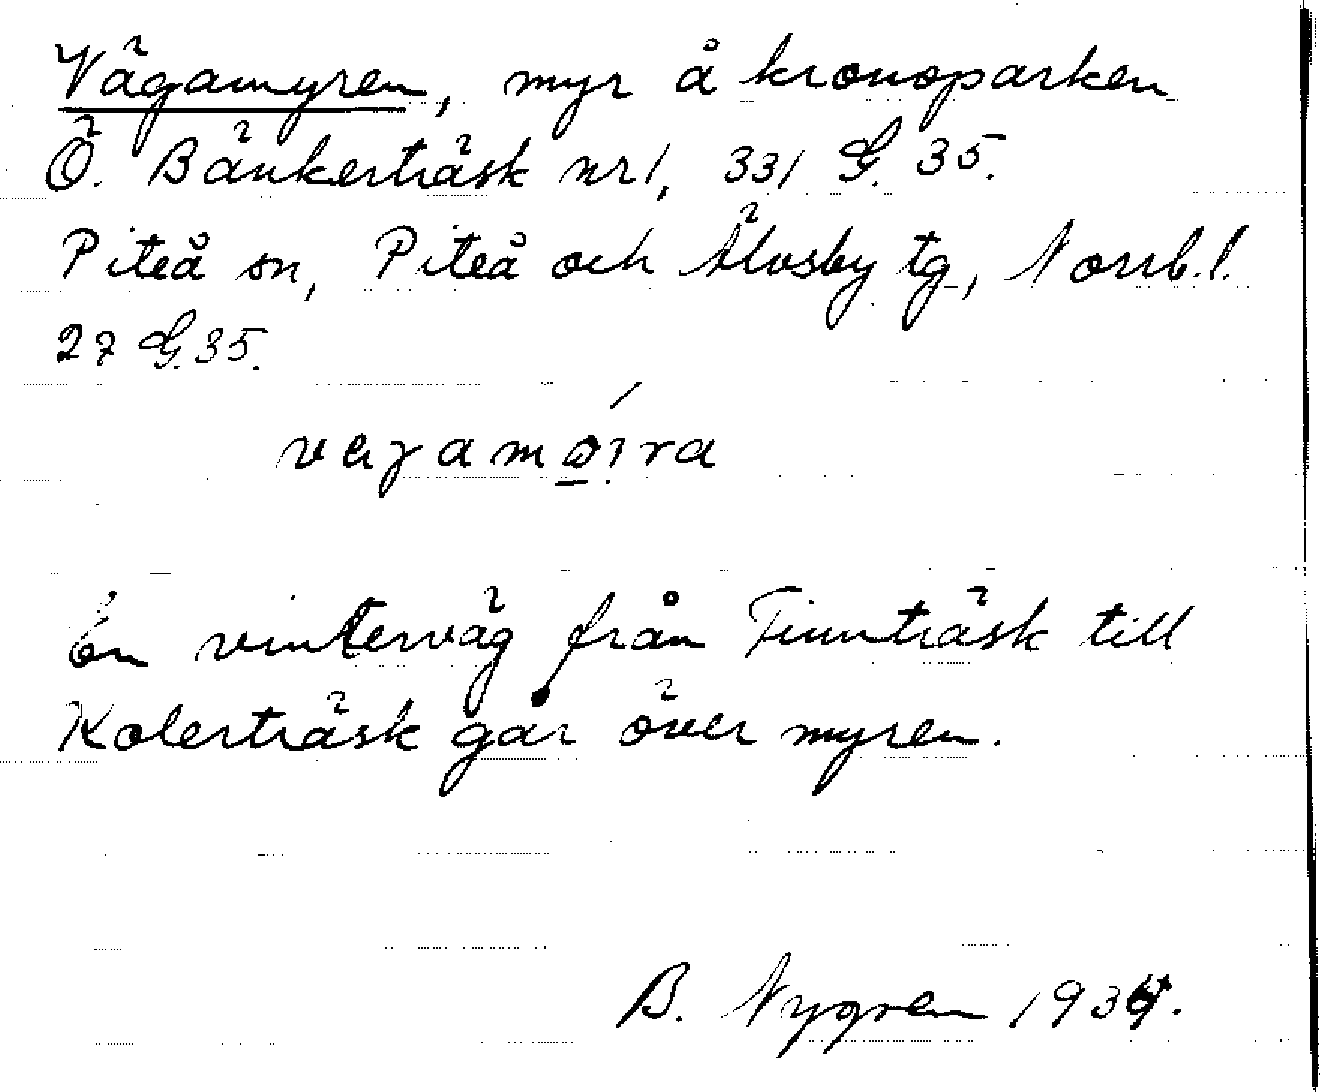 Vägamyren, myr å kronoparken
Ö. Bänkerträsk nr 1, 331 G. 35.
Piteå sn, Piteå och Älvsby tg, Norrb. l.
27 G. 35.
En vinterväg från Finnträsk till
Kolerträsk går över myren.
B. Nygren 1934.